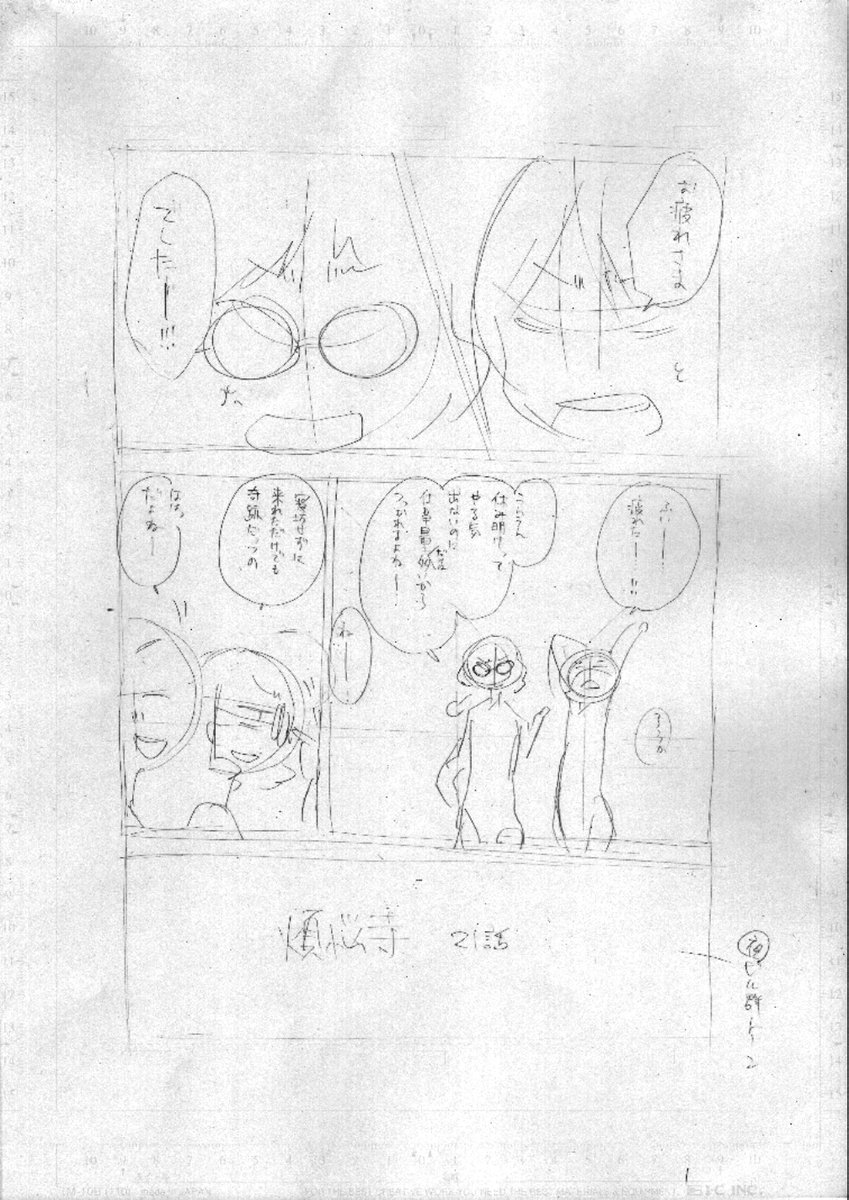 お疲れさま
でしたー!!!
ふいー
疲れたー!!
休み明けって
やる気
出ないのに
仕事量
多いから
つかれるよねー
ねー
寝坊せずに
来れただけでも
奇跡だっつの
はは、
だよねー
煩悩寺 21話
夜
ビル群トーン
1